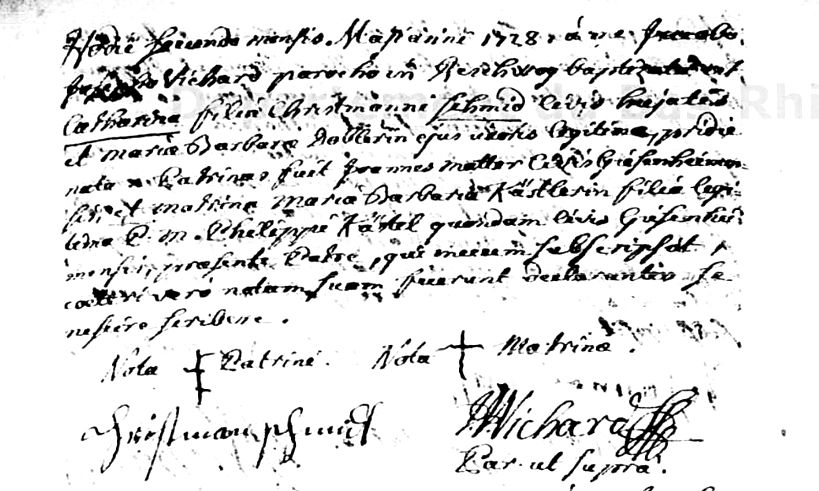 Hodie secunda mensis Maji anni 1728 á me Jacobo
Josepho Vichard parocho in Reschwog baptizata est
Catharina filia Christmanni Schmid civis hujatis
et Mariæ Barbaræ Doblerin ejus uxoris legitimæ, pridie
nata. Patrinus fuit Joannes Matter civis Gisenheimen-
sis, et matrina Maria Barbara Kästlerin filia legi-
tima P. M. Philippi Kästel quondam civis Gisenhei-
mensis, præsente Patre, qui mecum subscripsit,
cæteri vero notam suam fecerunt declarantes se
nescire scribere.
Nota Patrini. Nota Matrinæ.
Christman Schmidt
JJVichard
Par. ut supra.